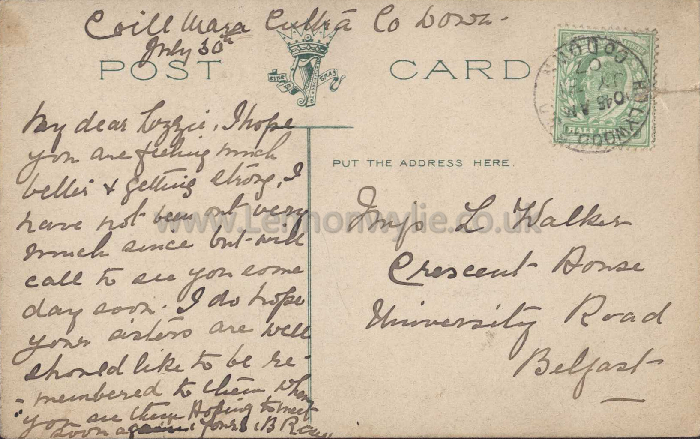 Coill Mara Cultra Co Down.
July 30th
POST CARD
HOLYWOOD
CO DOWN
10.45 AM
JY
07
HALF
My dear Lizzie, I hope
you are feeling much
better & getting strong, I
have not been out very
much since but will
call to see you some
day soon. I do hope
your sisters are well
should like to be re-
-membered to them when
you see them Hoping to meet
soon again, yours, B
PUT THE ADDRESS HERE.
Miss L Walker
Crescent House
University Road
Belfast
www.Lennonwylie.co.uk